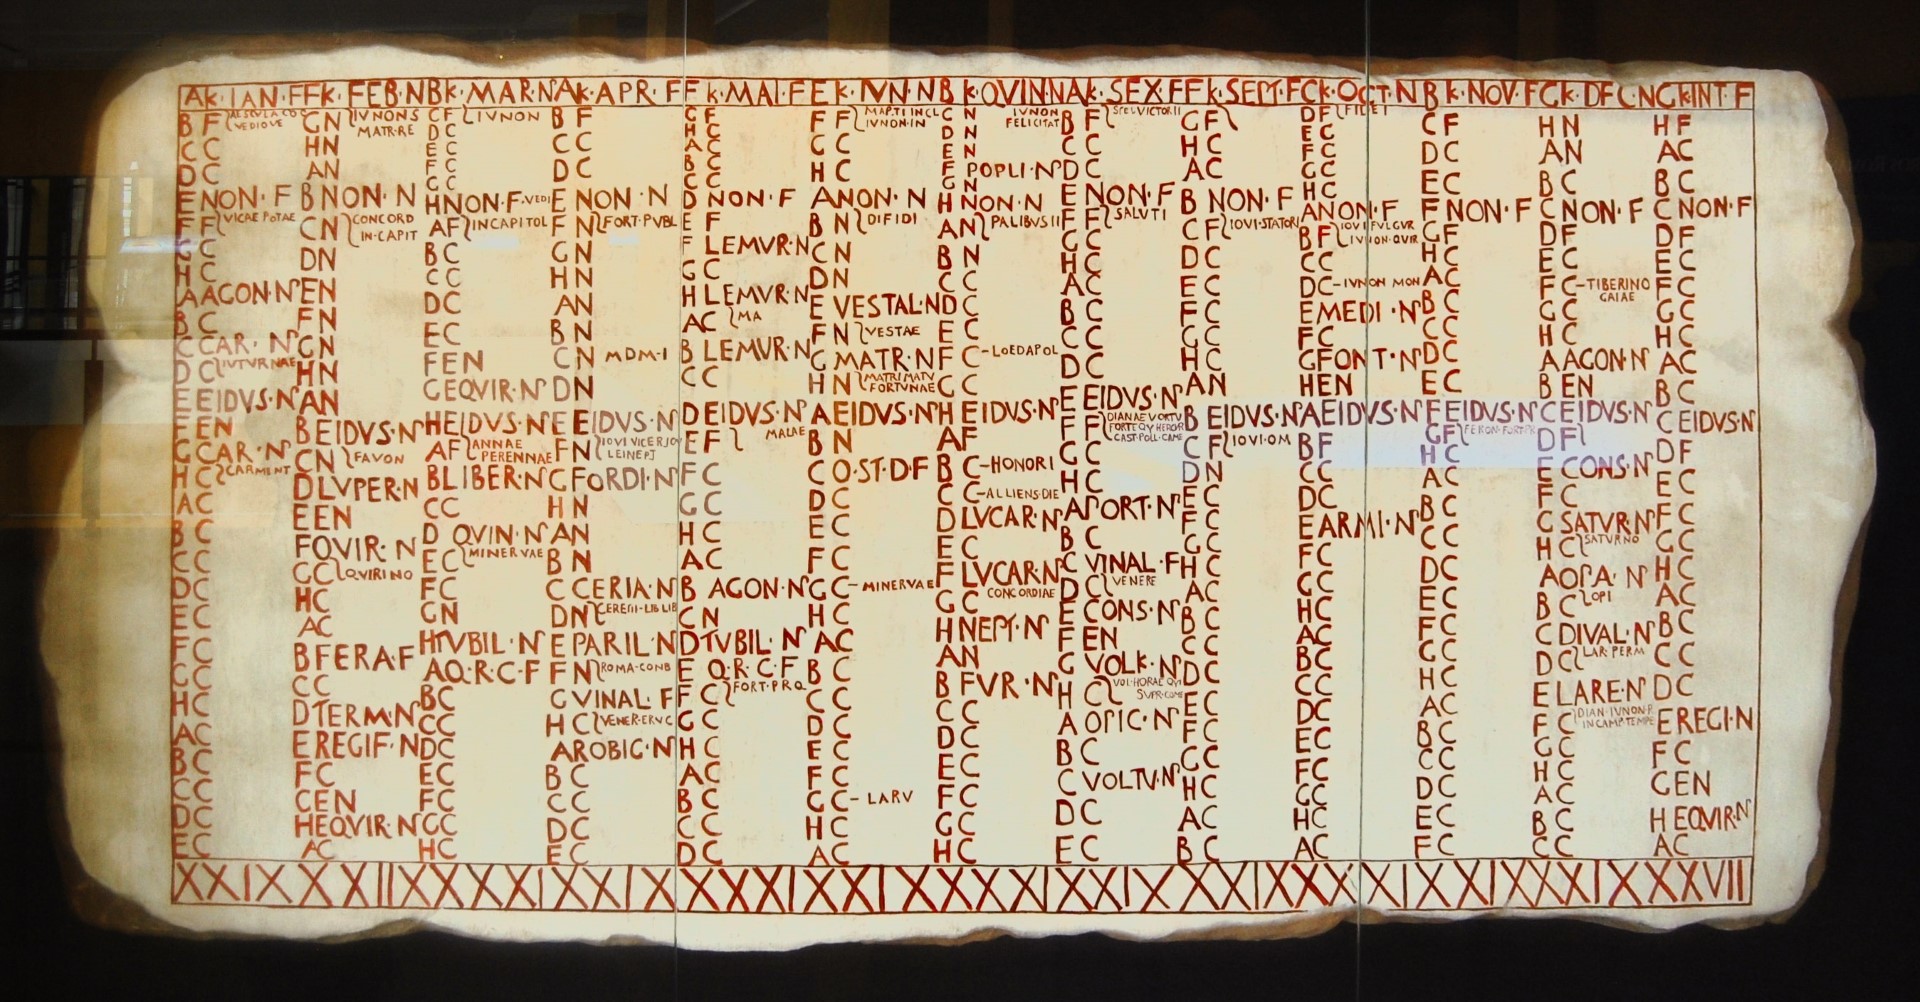 AK·IAN·F FK·FEB·N BK·MAR·N AK·APR·F FK·MAI·F EK·IVN·N BK·QVIN·N AK·SEX·F FK·SEPT·F CK·OCT·N BK·NOV·F GK·DEC·N GK·INT·F
B F
VEDIOVE
C C
D C
E NON·F
F F VICAE POTAE
G C
H C
A AGON·N
B C
C CAR·N
D C IVTVRNAE
E EIDVS·N
F EN
G CAR·N
H C CARMENT
A C
B C
C C
D C
E C
F C
G C
H C
A C
B C
C C
D C
E C
G N IVNONS
MATR·RE
H N
A N
B NON·N
C N CONCORD
IN·CAPIT
D N
E N
F N
G N
H N
A N
B EIDVS·N
C N FAVON
D LVPER·N
E EN
F QVIR·N
G C QVIRINO
H C
A C
B FERA·F
C C
D TERM·N
E REGIF·N
F C
G EN
H EQVIR·N
A C
C F IVNON
D C
E C
F C
G C
H NON·F·VEDI
A F INCAPITOL
B C
C C
D C
E C
F EN
G EQVIR·N
H EIDVS·N
A F ANNAE
PERENNAE
B LIBER·N
C C
D QVIN·N
E C MINERVAE
F C
G N
H TVBIL·N
A Q·R·C·F
B C
C C
D C
E C
F C
G C
H C
B F
C C
D C
E NON·N
F N FORT·PVBL
G N
H N
A N
B N
C N MDM·I
D N
E EIDVS·N
F N IOVI VICERIOV
LEINEPI
G FORDI·N
H N
A N
B N
C CERIA·N
D N CERERII·LIB LIB
E PARIL·N
F N ROMA·COND
G VINAL·F
H C VENER·ERVC
A ROBIG·N
B C
C C
D C
E C
G F
H C
A C
B C
C C
D NON·F
E F
F LEMVR·N
G C
H LEMVR·N
A C MA
B LEMVR·N
C C
D EIDVS·N
E F MALAE
F C
G C
H C
A C
B AGON·N
C N
D TVBIL·N
E Q·R·C·F
F C FORT·PRQ
G C
H C
A C
B C
C C
D C
F F MAR·TI INCL
IVNON·IN
G C
H C
A NON·N
B N DIFIDI
C N
D N
E VESTAL·N
F N VESTAE
G MATR·N
H N MATRIMATV
FORTVNAE
A EIDVS·N
B N
C O·ST·D·F
D C
E C
F C
G C – MINERVAE
H C
A C
B C
C C
D C
E C
F C
G C – LARV
H C
A C
C N
D N
E N
F POPLI·N
G N
H NON·N
A N PALIBVS II
B N
C N
D C
E C
F C – LOEDAPOL
G C
H EIDVS·N
A F
B C – HONORI
C C – ALLIENS·DIE
D LVCAR·N
E C
F LVCAR·N
G C CONCORDIAE
H NEPT·N
A N
B FVR·N
C C
D C
E C
F C
G C
H C
IVNON
FELICITAT
B F SPEI VICTOR II
C C
D C
E NON·F
F F SALVTI
G C
H C
A C
B C
C C
D C
E EIDVS·N
F F DIANAE VORTV
FORTEQV HERCR
CAST·POLL·CAME
G C
H C
A PORT·N
B C
C VINAL·F
D C VENERE
E CONS·N
F EN
G VOLK·N
H C VOL·HORAE QVI
SVPR·COME
A OPIC·N
B C
C VOLTV·N
D C
E C
G F
H C
A C
B NON·F
C F IOVI·STATORI
D C
E C
F C
G C
H C
A N
B EIDVS·N
C F IOVI·OM
D N
E C
F C
G C
H C
A C
B C
C C
D C
E C
F C
G C
H C
A C
B C
D F FIDEI
E C
F C
G C
H C
A NON·F
B F IOVI FVLGVR
IVNON·QVIR
C C
D C – IVNON MON
E MEDI·N
F C
G FONT·N
H EN
A EIDVS·N
B F
C C
D C
E ARMI·N
F C
G C
H C
A C
B C
C C
D C
E C
F C
G C
H C
A C
C F
D C
E C
F NON·F
G F
H C
A C
B C
C C
D C
E C
F EIDVS·N
G F FERON·FORT·PR
H C
A C
B C
C C
D C
E C
F C
G C
H C
A C
B C
C C
D C
E C
F C
H N
A N
B C
C NON·F
D F
E C
F C – TIBERINO
GAIAE
G C
H C
A AGON·N
B EN
C EIDVS·N
D F
E CONS·N
F C
G SATVR·N
H C SATVRNO
A OPA·N
B C OPI
C DIVAL·N
D C LAR·PERM
E LARE·N
F C DIAN·IVNON·R
IN CAMP·TEMPE
G C
H C
A C
B C
C C
H F
A C
B C
C NON·F
D F
E C
F C
G C
H C
A C
B C
C EIDVS·N
D F
E C
F C
G C
H C
A C
B C
C C
D C
E REGI·N
F C
G EN
H EQVIR·N
A C
XXIX XXIIX XXXI XXIX XXXI XXIX XXXI XXIX XXIX XXXI XXIX XXIX XXVII